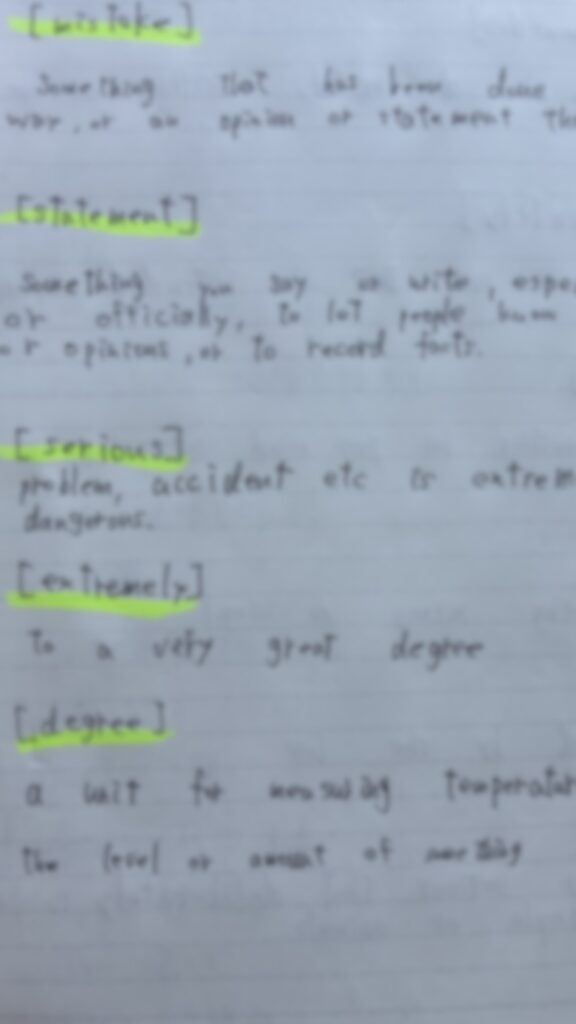 [mistake]
Something that has done
way, or an opinion or statement
[statement]
Something you say or write,
or officially, to let people
or opinions, or to record facts.
[serious]
problem, accident etc is
dangerous.
[extremely]
To a very great degree
[degree]
a unit for measuring
the level or amount of something